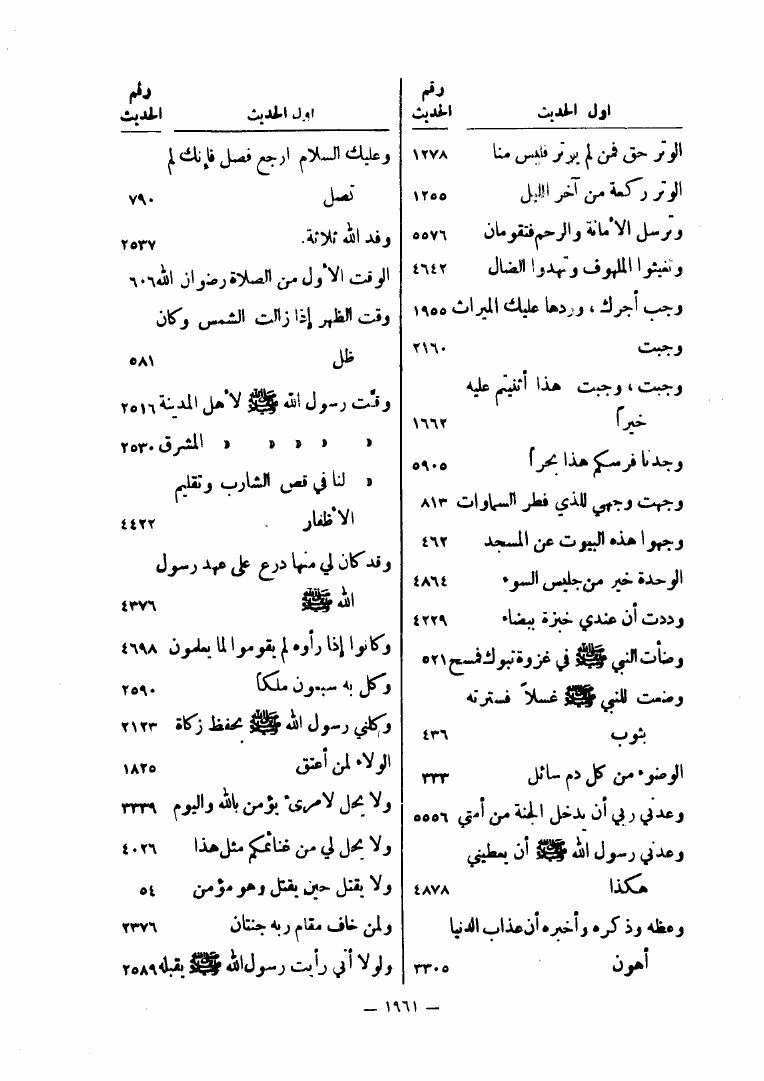 رقم
اول الحديث الحديث
الوتر حق فمن لم يوتر فليس منا ١٢٧٨
الوتر ركعة من آخر الليل ١٢٥٥
وترسل الأمانة والرحم فتقومان ٥٥٧٦
وتغيثوا الملهوف وتهدوا الضال ٤٦٤٢
وجب أجرك ، وردها عليك الميراث ١٩٥٥
وجبت ٢١٦٠
وجبت ، وجبت هذا أثنيتم عليه
خيراً ١٦٦٢
وجدنا فرسكم هذا بحراً ٥٩٠٥
وجهت وجهي للذي فطر السماوات ٨١٣
وجهوا هذه البيوت عن المسجد ٤٦٢
الوحدة خير من جليس السوء ٤٨٦٤
وددت أن عندي خبزة بيضاء ٤٢٢٩
وضأت النبي ﷺ في غزوة تبوك فمسح ٥٢١
وضعت للنبي ﷺ غسلاً فسترته
بثوب ٤٣٦
الوضوء من كل دم سائل ٣٣٣
وعدني ربي أن يدخل الجنة من أمتي ٥٥٥٦
وعدني رسول الله ﷺ أن يعطيني
هكذا ٤٨٧٨
وعظه وذكره وأخبره أن عذاب الدنيا
أهون ٣٣٠٥
رقم
اول الحديث الحديث
وعليك السلام ارجع فصل فإنك لم
تصل ٧٩٠
وفد الله ثلاثة. ٢٥٣٧
الوقت الأول من الصلاة رضوان الله ٦٠٦
وقت الظهر إذا زالت الشمس وكان
ظل ٥٨١
وقّت رسول الله ﷺ لأهل المدينة ٢٥١٦
» » » » المشرق ٢٥٣٠
» لنا في قص الشارب وتقليم
الأظفار ٤٤٢٢
وقد كان لي منها درع على عهد رسول
الله ﷺ ٤٣٧٦
وكانوا إذا رأوه لم يقوموا لما يعلمون ٤٦٩٨
وكل به سبعون ملكاً ٢٥٩٠
وكلني رسول الله ﷺ بحفظ زكاة ٢١٢٣
الولاء لمن أعتق ١٨٢٥
ولا يحل لامرىء يؤمن بالله واليوم ٣٣٣٩
ولا يحل لي من غنائمكم مثل هذا ٤٠٢٦
ولا يقتل حين يقتل وهو مؤمن ٥٤
ولمن خاف مقام ربه جنتان ٢٣٧٦
ولولا أني رأيت رسول الله ﷺ يقبله ٢٥٨٩
— ١٩٦١ —